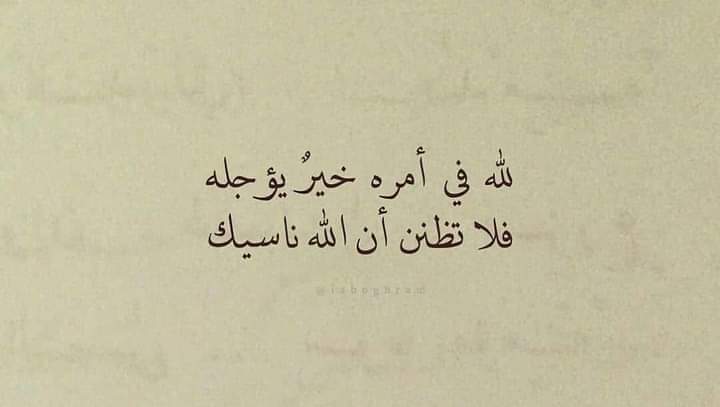 لله في أمره خيرٌ يؤجله
فلا تظنن أن الله ناسيك
@isboghram